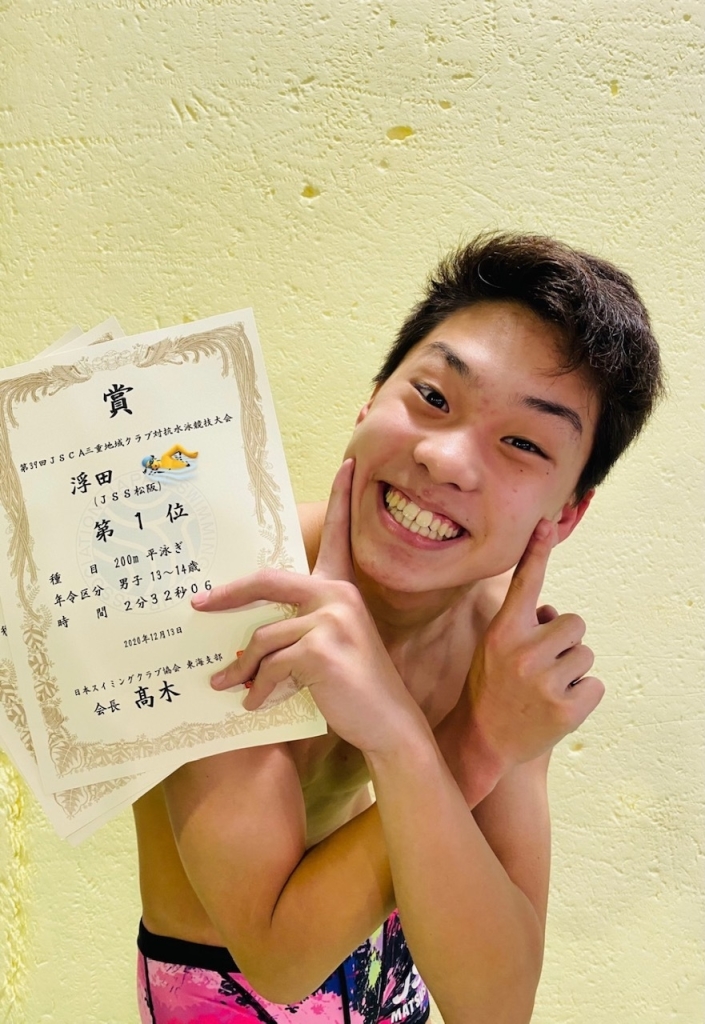 賞
第39回JSCA三重地域クラブ対抗水泳競技大会
浮田
(JSS松阪)
第1位
種目 200m 平泳ぎ
年令区分 男子 13～14歳
時間 2分32秒06
2020年12月13日
日本スイミングクラブ協会 東海支部
会長 髙木
JSS
MATS